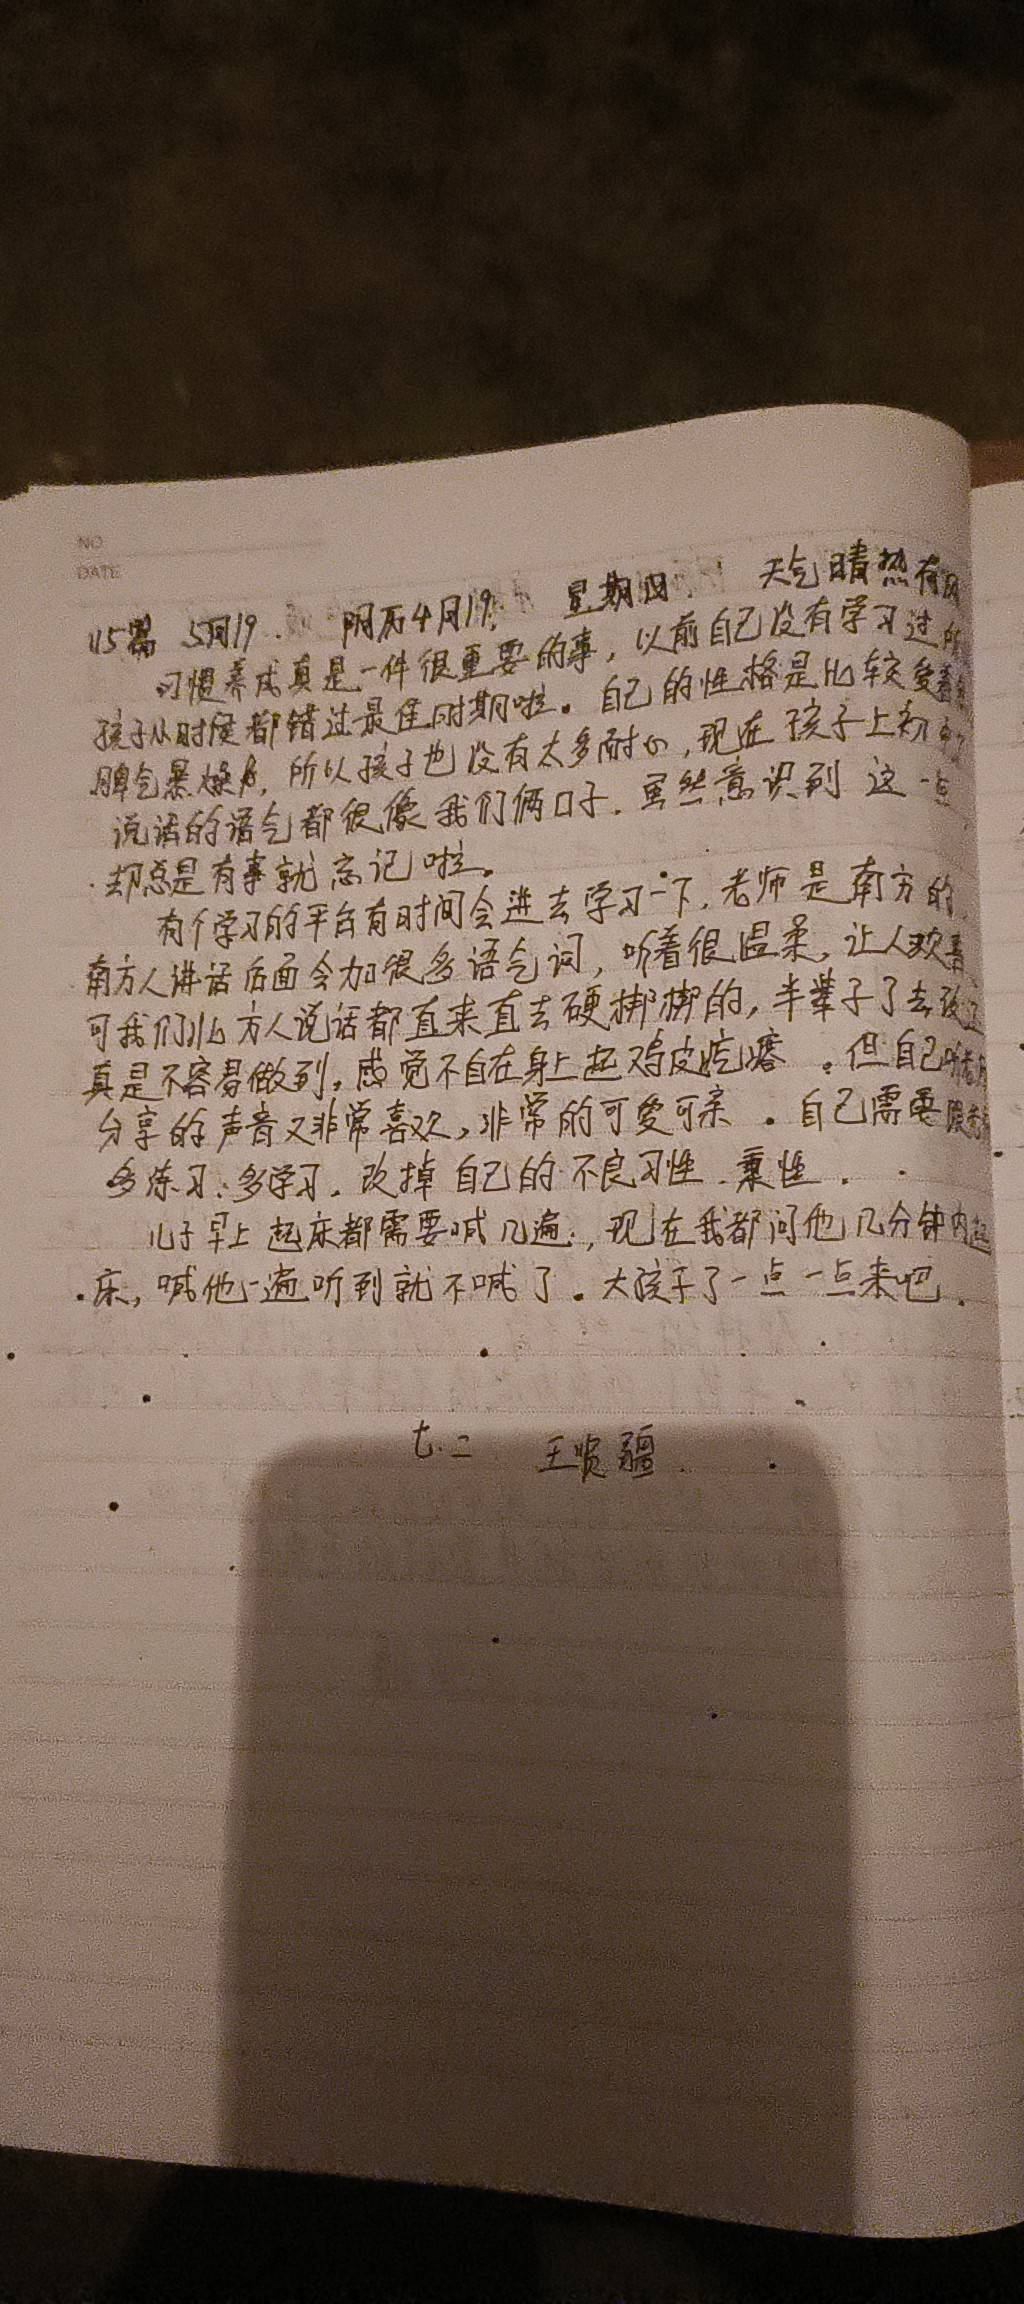 NO
DATE
115篇 5月19. 阴历4月19. 星期四. 天气晴热有风
习惯养成真是一件很重要的事，以前自己没有学习过所
孩子从时候都错过最佳时期啦。自己的性格是比较爱着急
脾气暴燥，所以孩子也没有太多耐心，现在孩子上初中了
说话的语气都很像我们俩口子．虽然意识到这一点
却总是有事就忘记啦。
有个学习的平台有时间会进去学习一下．老师是南方的．
南方人讲话后面会加很多语气词，听着很温柔，让人欢喜
可我们北方人说话都直来直去硬梆梆的，半辈子了去改
真是不容易做到。感觉不自在身上起鸡皮疙瘩。但自己听老师
分享的声音又非常喜欢，非常的可爱可亲。自己需要跟老师
多练习、多学习．改掉自己的不良习性．秉性．
儿子早上起床都需要喊几遍．，现在我都问他几分钟内起
床，喊他一遍听到就不喊了。大孩子了一点一点来吧．
七.二 王 疆